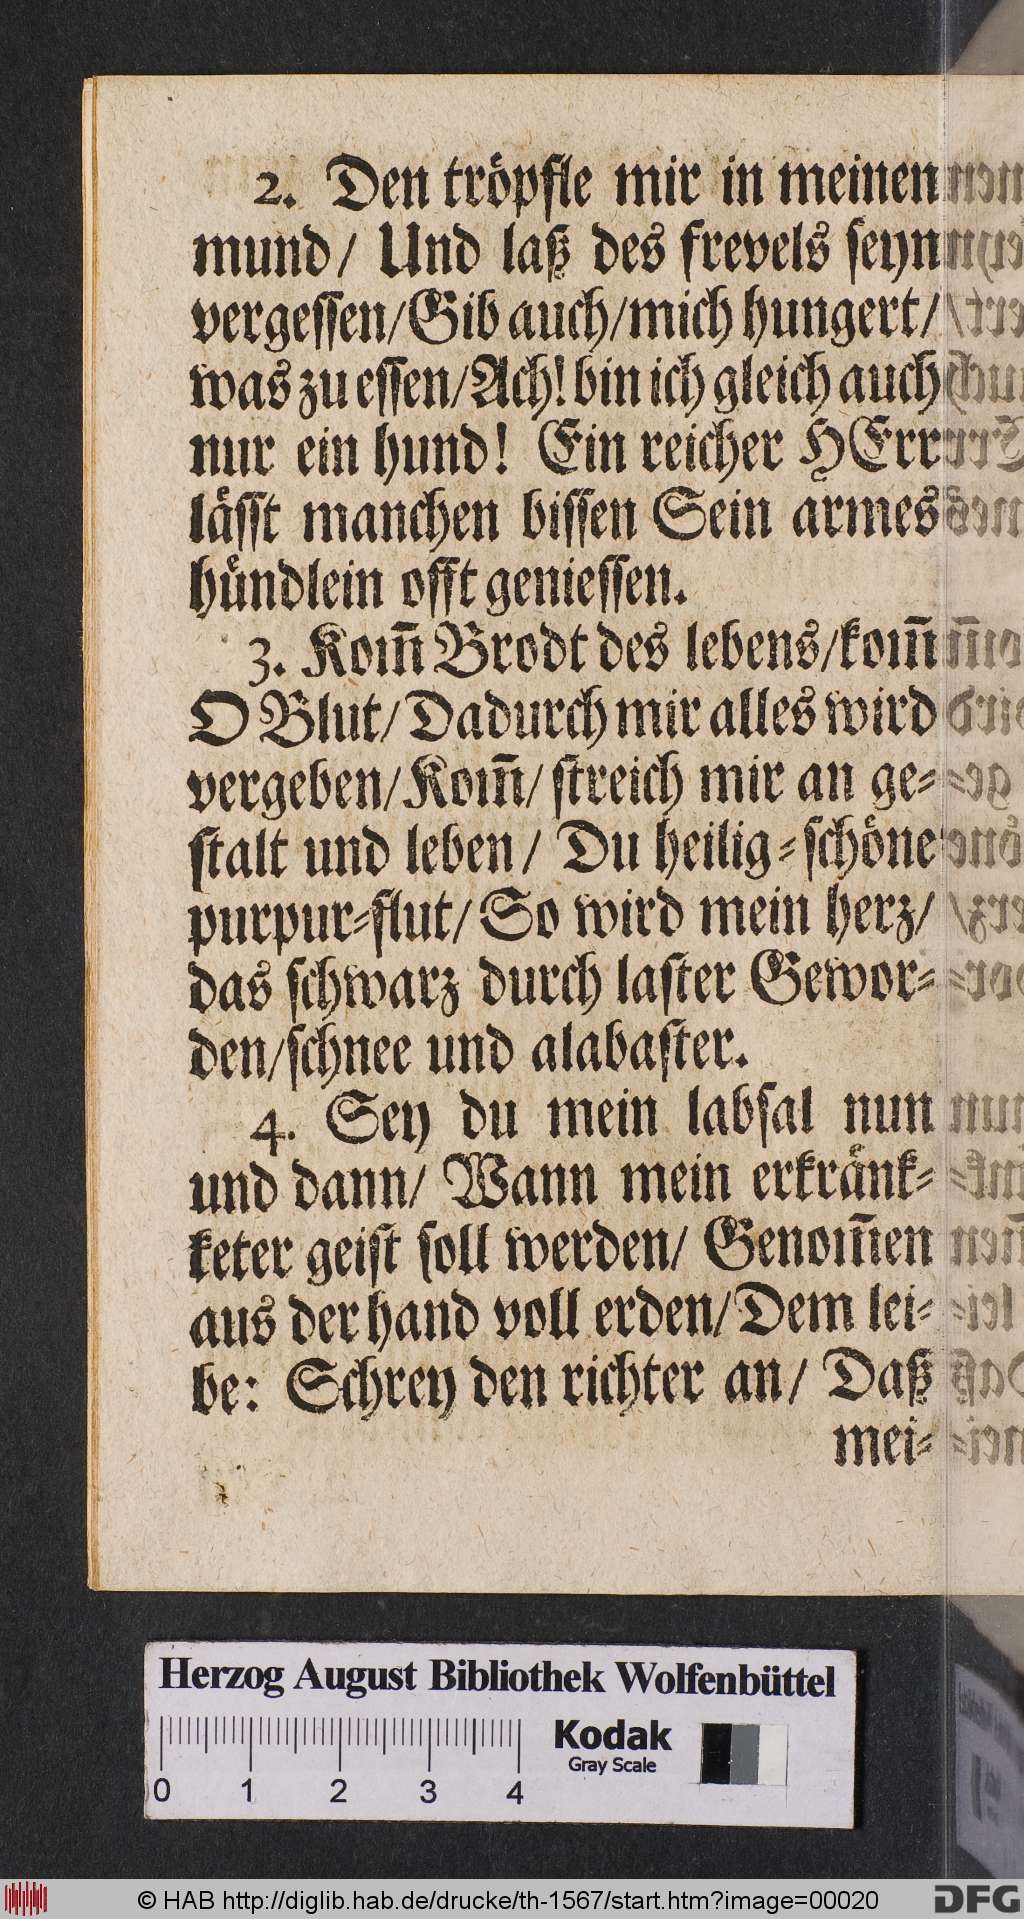 2. Den tröpfle mir in meinen
mund/ Und laß des frevels seyn
vergessen/Gib auch/mich hungert/
was zu essen/Ach! bin ich gleich auch
nur ein hund! Ein reicher HErr
lässt manchen bissen Sein armes
hündlein offt geniessen.
3. Kom̃ Brodt des lebens/kom̃
O Blut/Dadurch mir alles wird
vergeben/Kom̃/streich mir an ge-
stalt und leben/ Du heilig-schöne
purpur-flut/So wird mein herz/
das schwarz durch laster Gewor-
den/schnee und alabaster.
4. Sey du mein labsal nun
und dann/ Wann mein erkränk-
keter geist soll werden/ Genom̃en
aus der hand voll erden/Dem lei-
be: Schrey den richter an/ Daß
mei-
Herzog August Bibliothek Wolfenbüttel
Kodak
Gray Scale
0 1 2 3 4
© HAB http://diglib.hab.de/drucke/th-1567/start.htm?image=00020
DFG